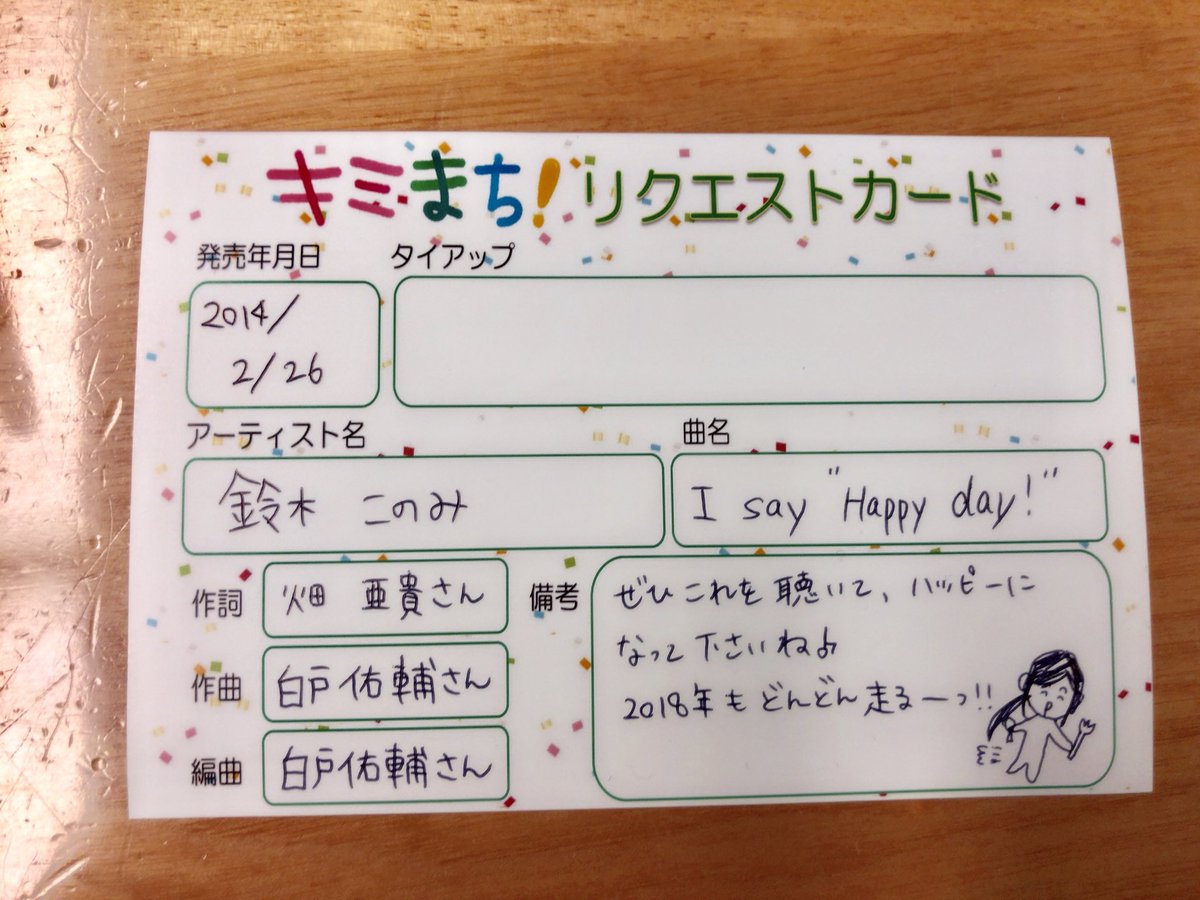 キミまち!リクエストカード
発売年月日
タイアップ
2014/
2/26
アーティスト名
曲名
鈴木 このみ
I say "Happy day!"
作詞
畑 亜貴さん
作曲
白戸佑輔さん
編曲
白戸佑輔さん
備考
ぜひこれを聴いて、ハッピーに
なって下さいね♪
2018年もどんどん走るーっ!!